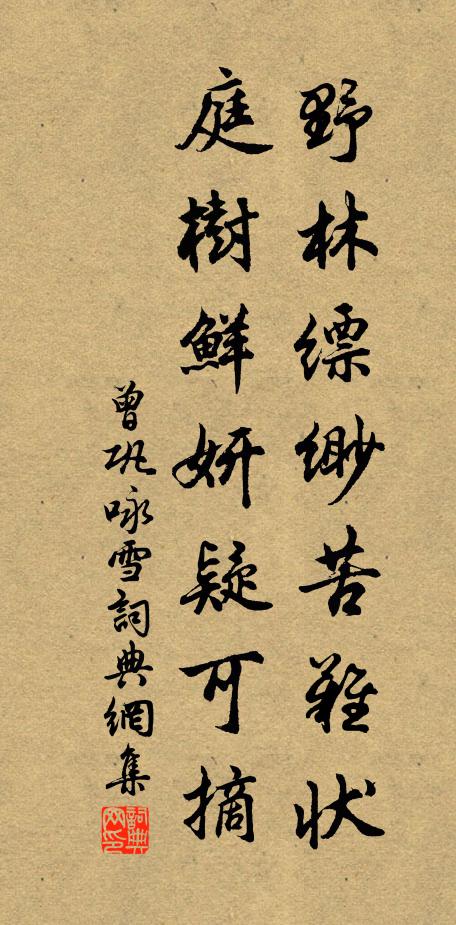 野林缥缈苦难状
庭樹鮮妍疑可摘
曾巩咏雪詞典網集
詞典網印